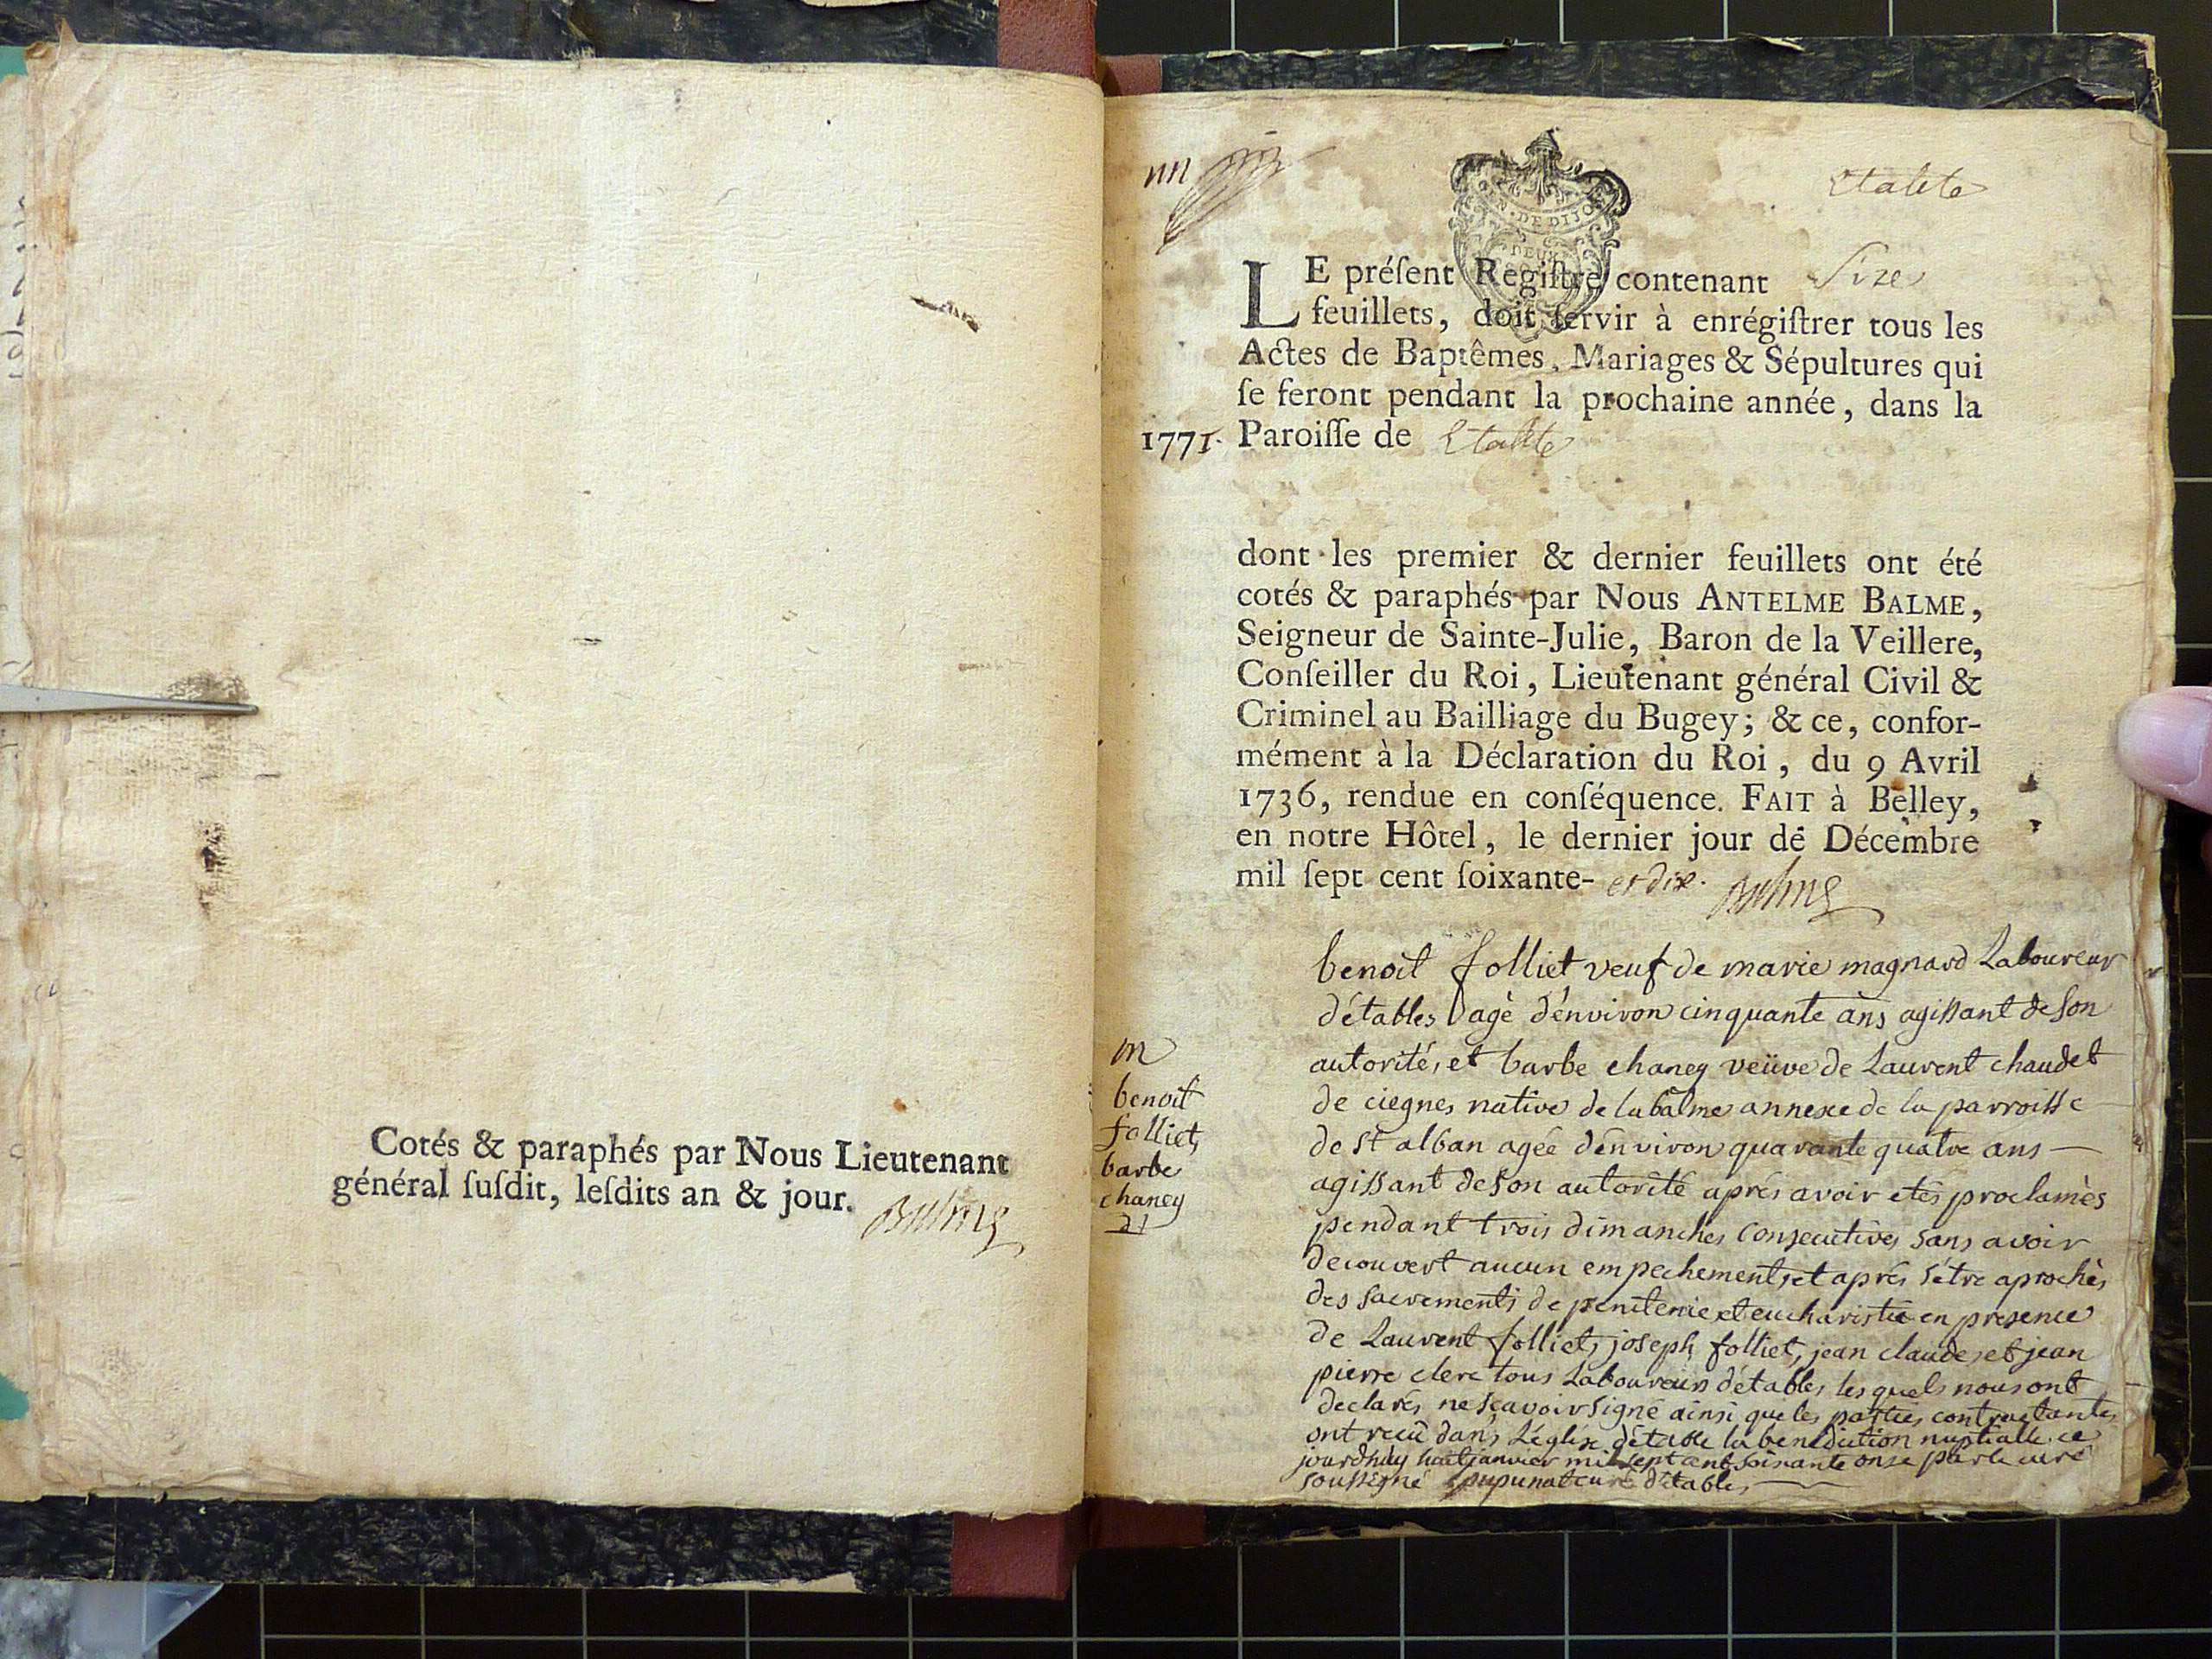 Cotés & paraphés par Nous Lieutenant
général ſuſdit, leſdits an & jour. Balme
N. DE DIJO
DEUX
LE préſent Regiſtre contenant Size
feuillets, doit ſervir à enrégiſtrer tous les
Actes de Baptêmes, Mariages & Sépultures qui
ſe feront pendant la prochaine année, dans la
1771. Paroiſſe de
dont les premier & dernier feuillets ont été
cotés & paraphés par Nous ANTELME BALME,
Seigneur de Sainte-Julie, Baron de la Veillere,
Conſeiller du Roi, Lieutenant général Civil &
Criminel au Bailliage du Bugey; & ce, confor-
mément à la Déclaration du Roi, du 9 Avril
1736, rendue en conſéquence. FAIT à Belley,
en notre Hôtel, le dernier jour de Décembre
mil ſept cent ſoixante- et dix. Balme
m
benoit
folliet,
barbe
chaney
benoit folliet veuf de marie magnard Laboureur
d'étables agé d'énviron cinquante ans agissant de son
autorité, et barbe chaney veüve de Laurent chaudet
de ciegnes native de la balme annexe de la parroisse
de st alban agée d'énviron quarante quatre ans —
agissant de son autorité aprés avoir etés proclamès
pendant trois dimanches consecutives sans avoir
decouvert aucun empechement, et aprés s'étre aprochès
des sacrements de penitence et eucharistie en presence
de Laurent folliet, joseph folliet, jean claude, et jean
pierre clerc tous Laboureurs d'étables lesquels nous ont
declarés ne sçavoir signé ainsi que les parties contractantes
ont recû dans L'églize d'étable la benediction nuptialle ce
jourdhuy huit janvier mil sept cent soixante onze par le curé
soussigné pupunat curé d'étables